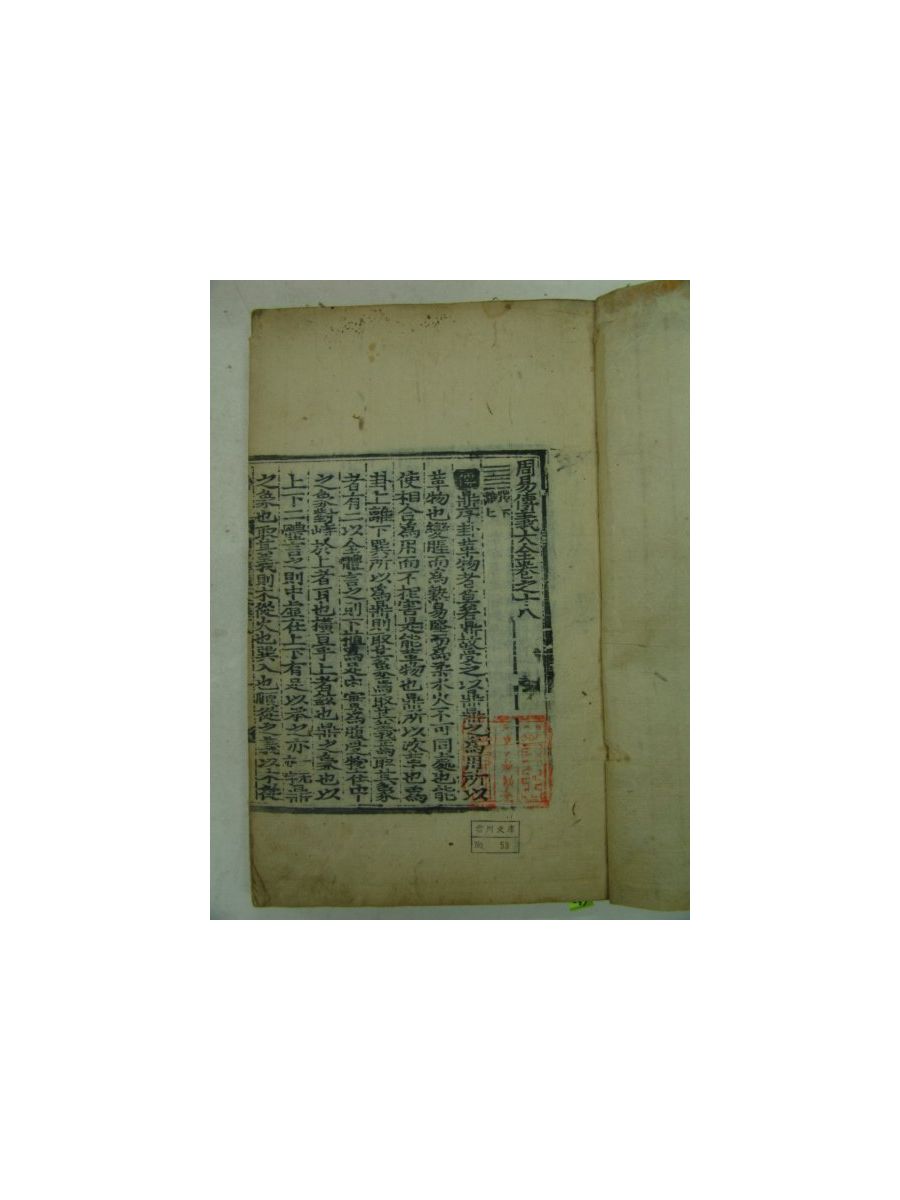 周易傳義大全卷之十八
巽下
離上
傳鼎序卦革物者莫若鼎故受之以鼎鼎之爲用所以
革物也變腥而爲熟易堅而爲柔水火不可同處也能
使相合爲用而不相害是能革物也鼎所以次革也爲
卦上離下巽所以爲鼎則取其象焉取其義焉取其象
者有二以全體言之則下植爲足中實爲腹受物在中
之象對峙於上者耳也橫亘乎上者鉉也鼎之象也以
上下二體言之則中虛在上下有足以承之亦
之象也取其義則木從火也巽入也順從之義以木從
文庫
No 53